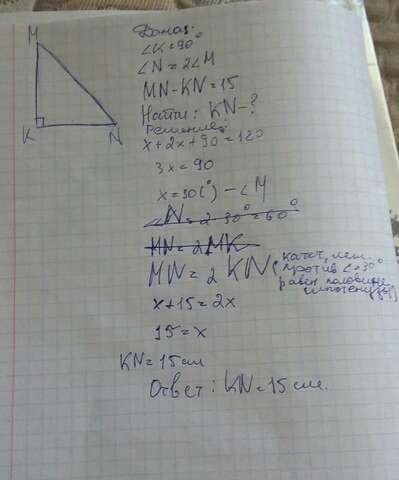 M
K
N
Дано:
∠K=90°
∠N=2∠M
MN-KN=15
Найти: KN-?
Решение:
x+2x+90=180
3x=90
x=30(°)-∠M
∠N=2·30°=60°
MN=2MK
MN=2KN (катет, леж.
против ∠30°
равен половине
гипотенузы)
x+15=2x
15=x
KN=15см
Ответ: KN=15см.